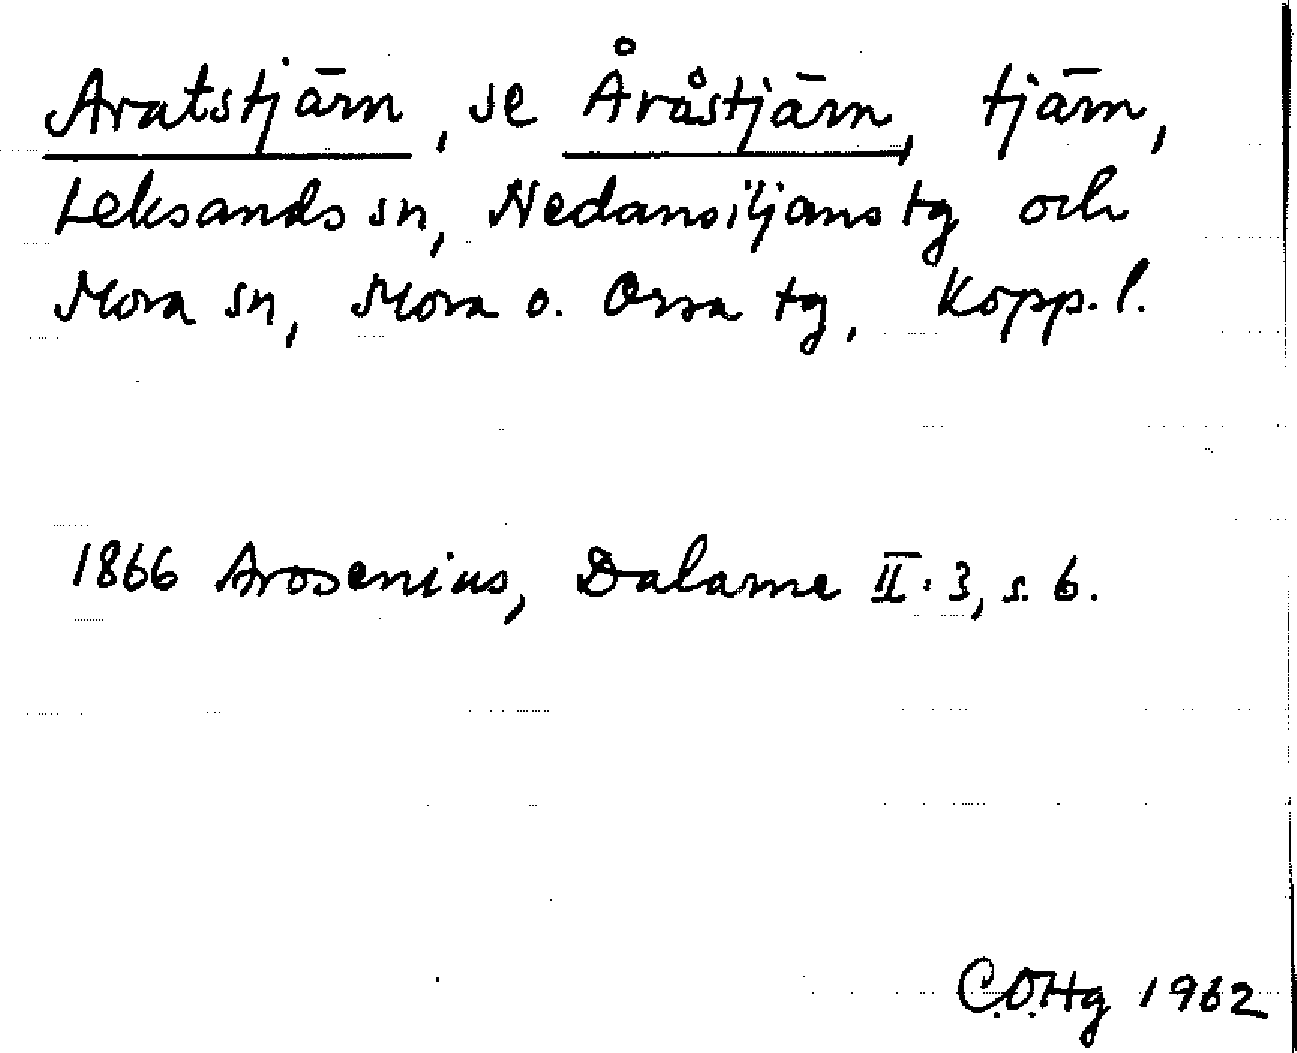 Aratstjärn, se Åråstjärn, tjärn,
Leksands sn, Nedansiljans tg och
Mora sn, Mora o. Orsa tg, Kopp. l.
1866 Arosenius, Dalarne II. 3, s. 6.
C.O.Hg 1962